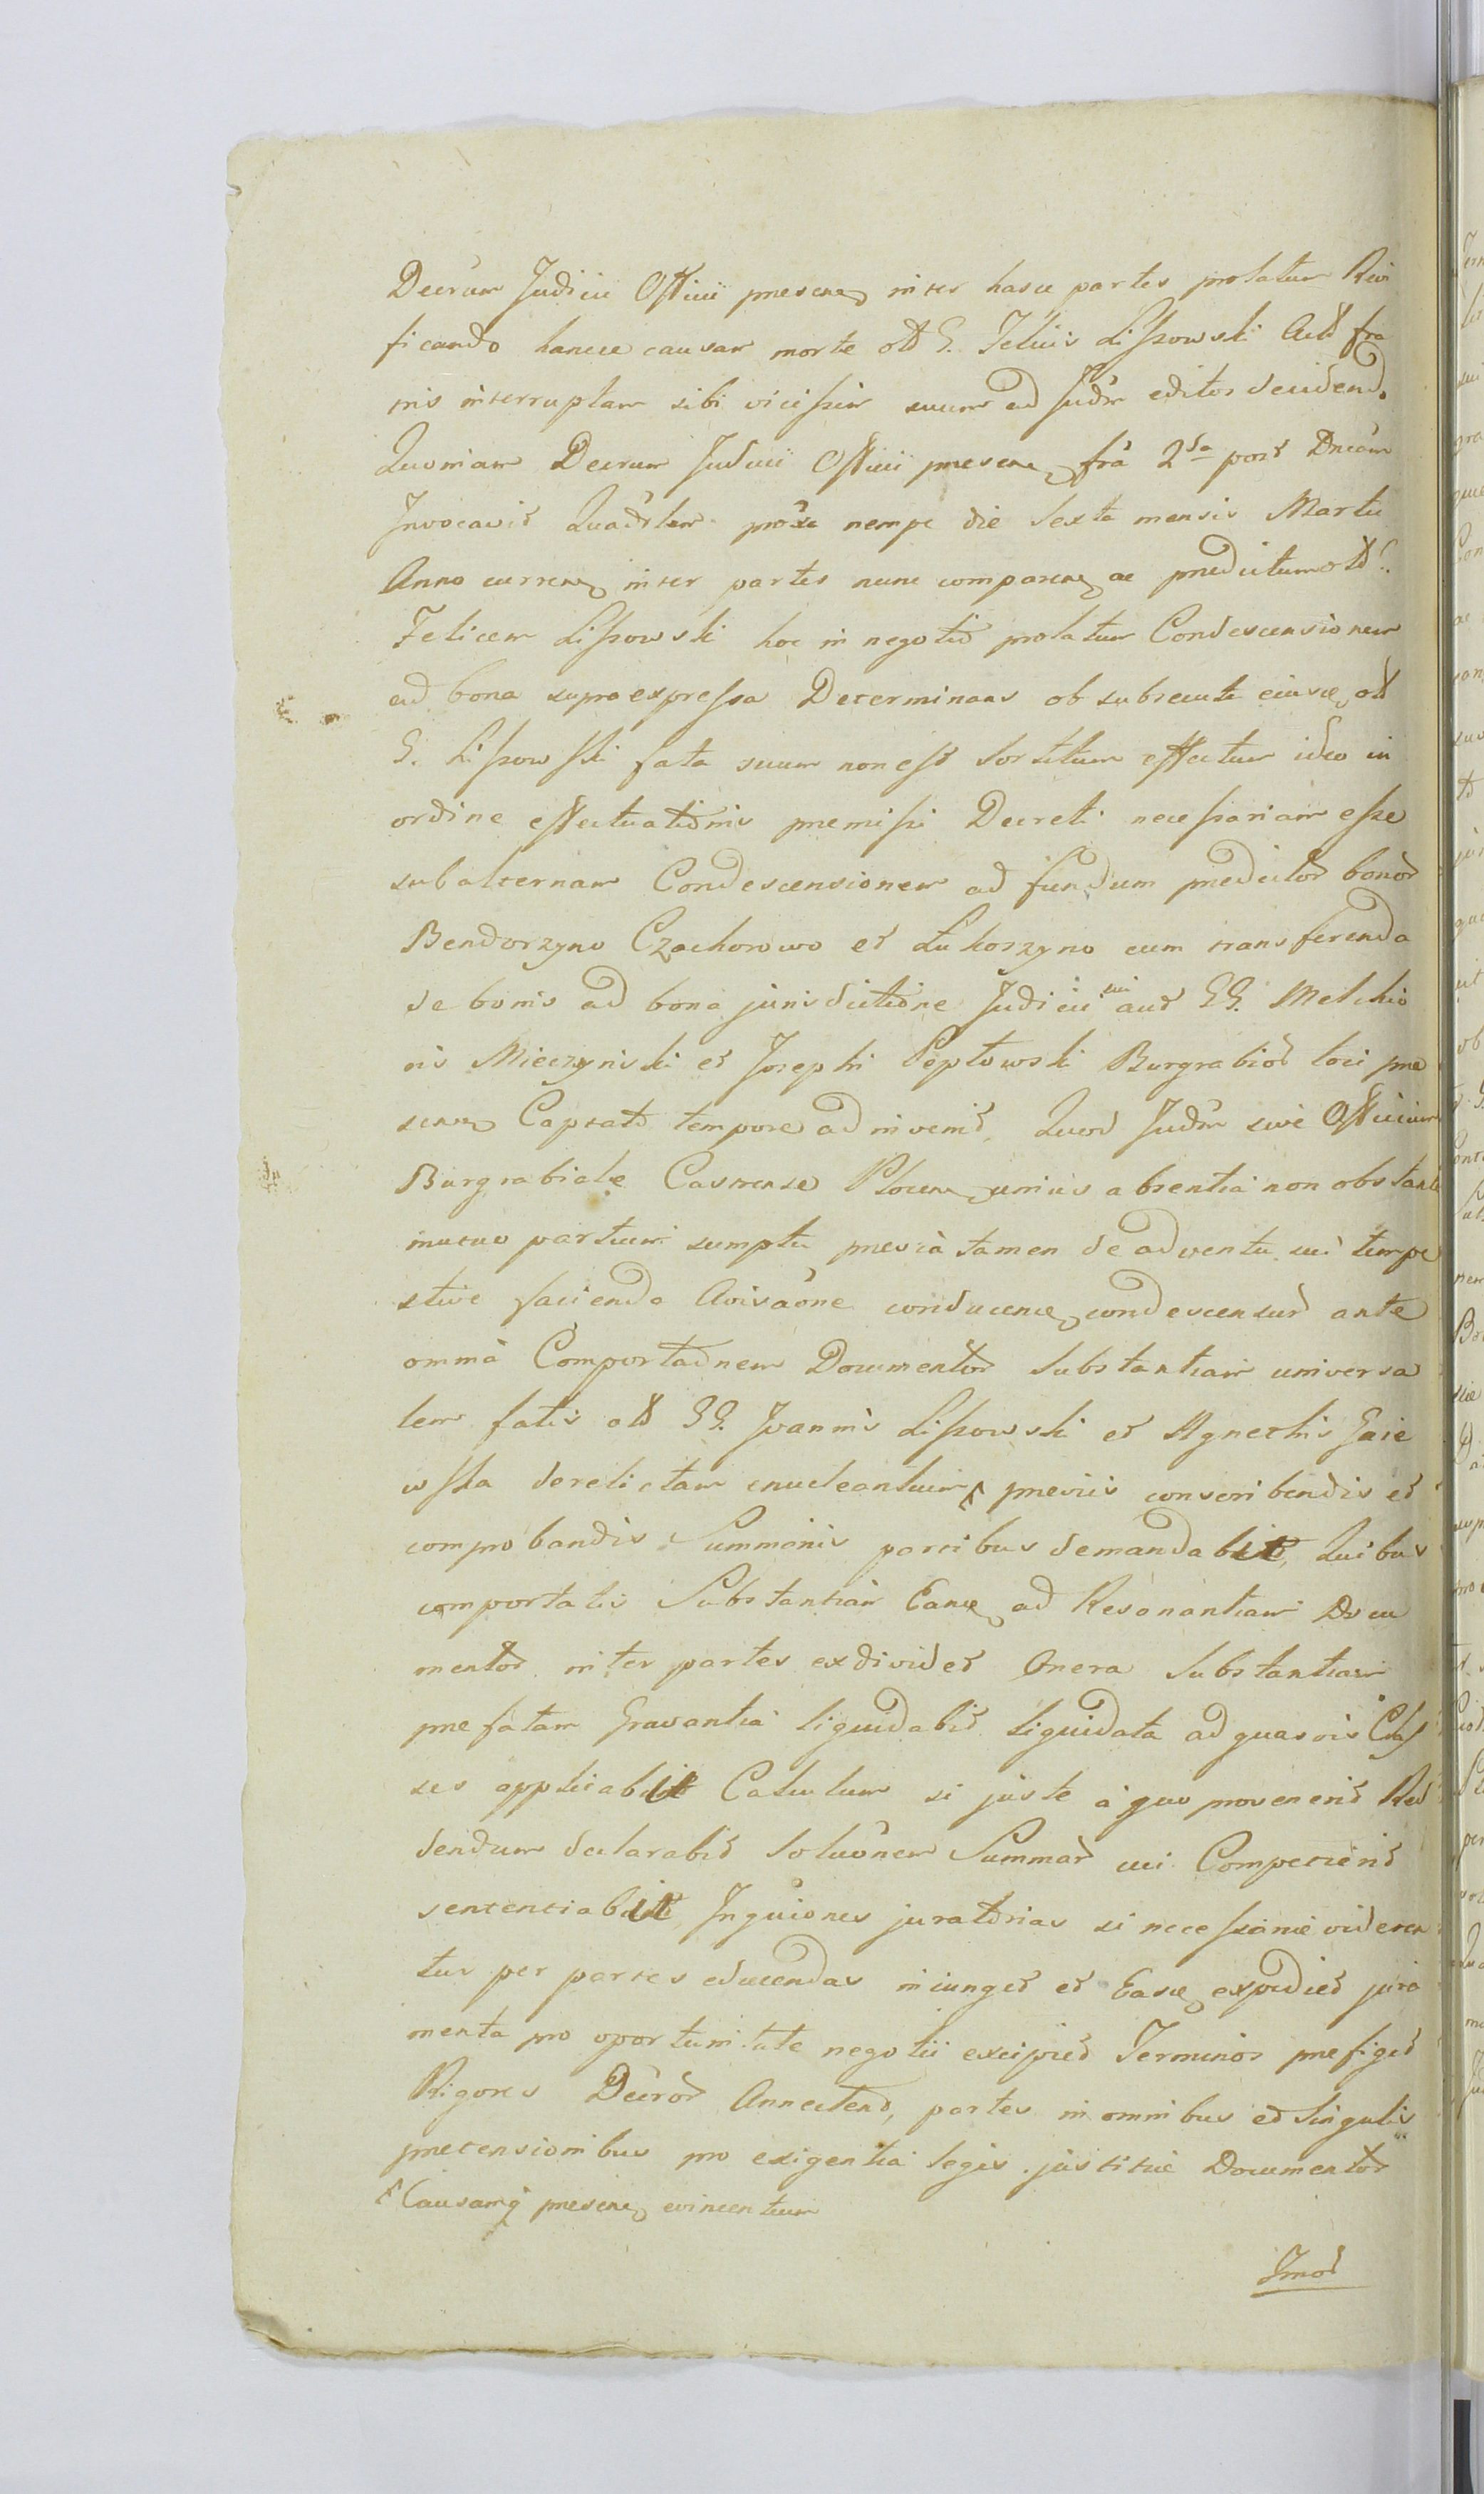 Decrum Judicii Officii presen inter hasce partes prolatum Rivi
ficando hancce causam morte olt G. Felicis Lissowski Actt fra
tris interruptam sibi vicissim suum ad Judm editos decidend.
Quoniam Decrum Judicii Officii presen fra 2da post Dncam
Invocavit Quadrlem prose nempe die sexta mensis Martii
Anno curren inter partes nunc comparen ac predictum olt G.
Felicem Lissowski hoc in negotio prolatum Condescensionem
ad bona supraexpressa Determinans ob subsecuta eiusce olt
G. Lissowski fata suum non est sortitum effectum ideo in
ordine effectuationis premissi Decreti necessariam esse
subalternam Condescensionem ad fundum predictor bonor
Bendorzyno Czachorowo et Lukoszyno cum transferenda
de bonis ad bona jurisdictione Judicii sui aut GG. Melchio
ris Mieczynski et Josephi Peptowski Burgrabior loci pre
sen Captato tempore adinvenit. Quod Judm sive Officium
Burgrabiale Castrense Plocen unius absentia non obstante
mutuo partium sumptu previa tamen de adventu sui tempe
stive facienda Avisaone conducen condescensur ante
omnia Comportaonem Documentor Substantiam universa
lem fatis olt GG. Joannis Lissowski et Agnethis Gaie
wska derelictam enucleantium previis conscribendis et
comprobandis Summariis partibus demandabit, Quibus
comportatis Substantiam Eance ad Resonantiam Docu
mentor inter partes exdividet Onera Substantiam
prefatam Gravantia liquidabit liquidata ad quasvis Clas
ses applicabit Calculum si juste a quo provenerit Red
dendum declarabit Soluonem Summar cui Competierit
sententiabit Inquiones juratorias si necessarie videren
tur per partes educendas iniunget et Easce expediet jura
menta pro oportunitate negotii excipiet Terminos prefiget
Rigores Decror Annectend, partes in omnibus et singulis
pretensionibus pro exigentia legis justitie Documentor
Causamq presen evincentium
Imot